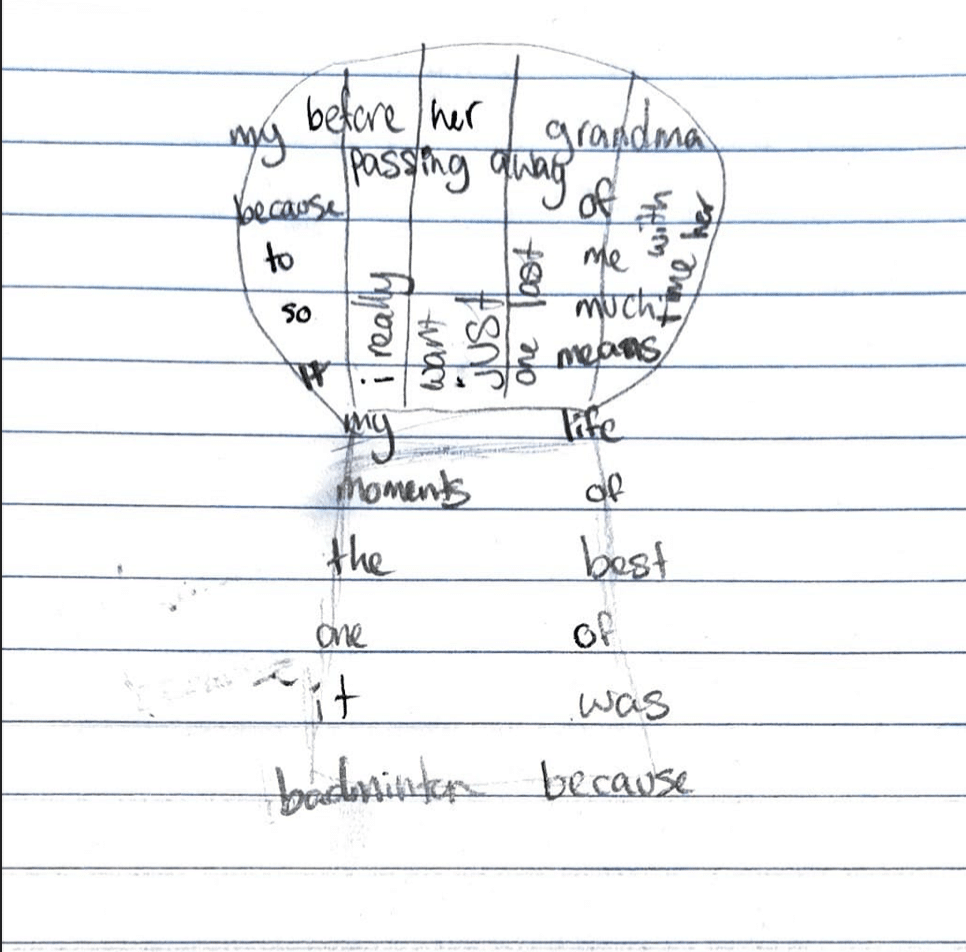 before her
my grandma
passing away
because of
to me
so much
it means
i really
want
just
one last
with
time her
my life
moments of
the best
one of
it was
badminton because